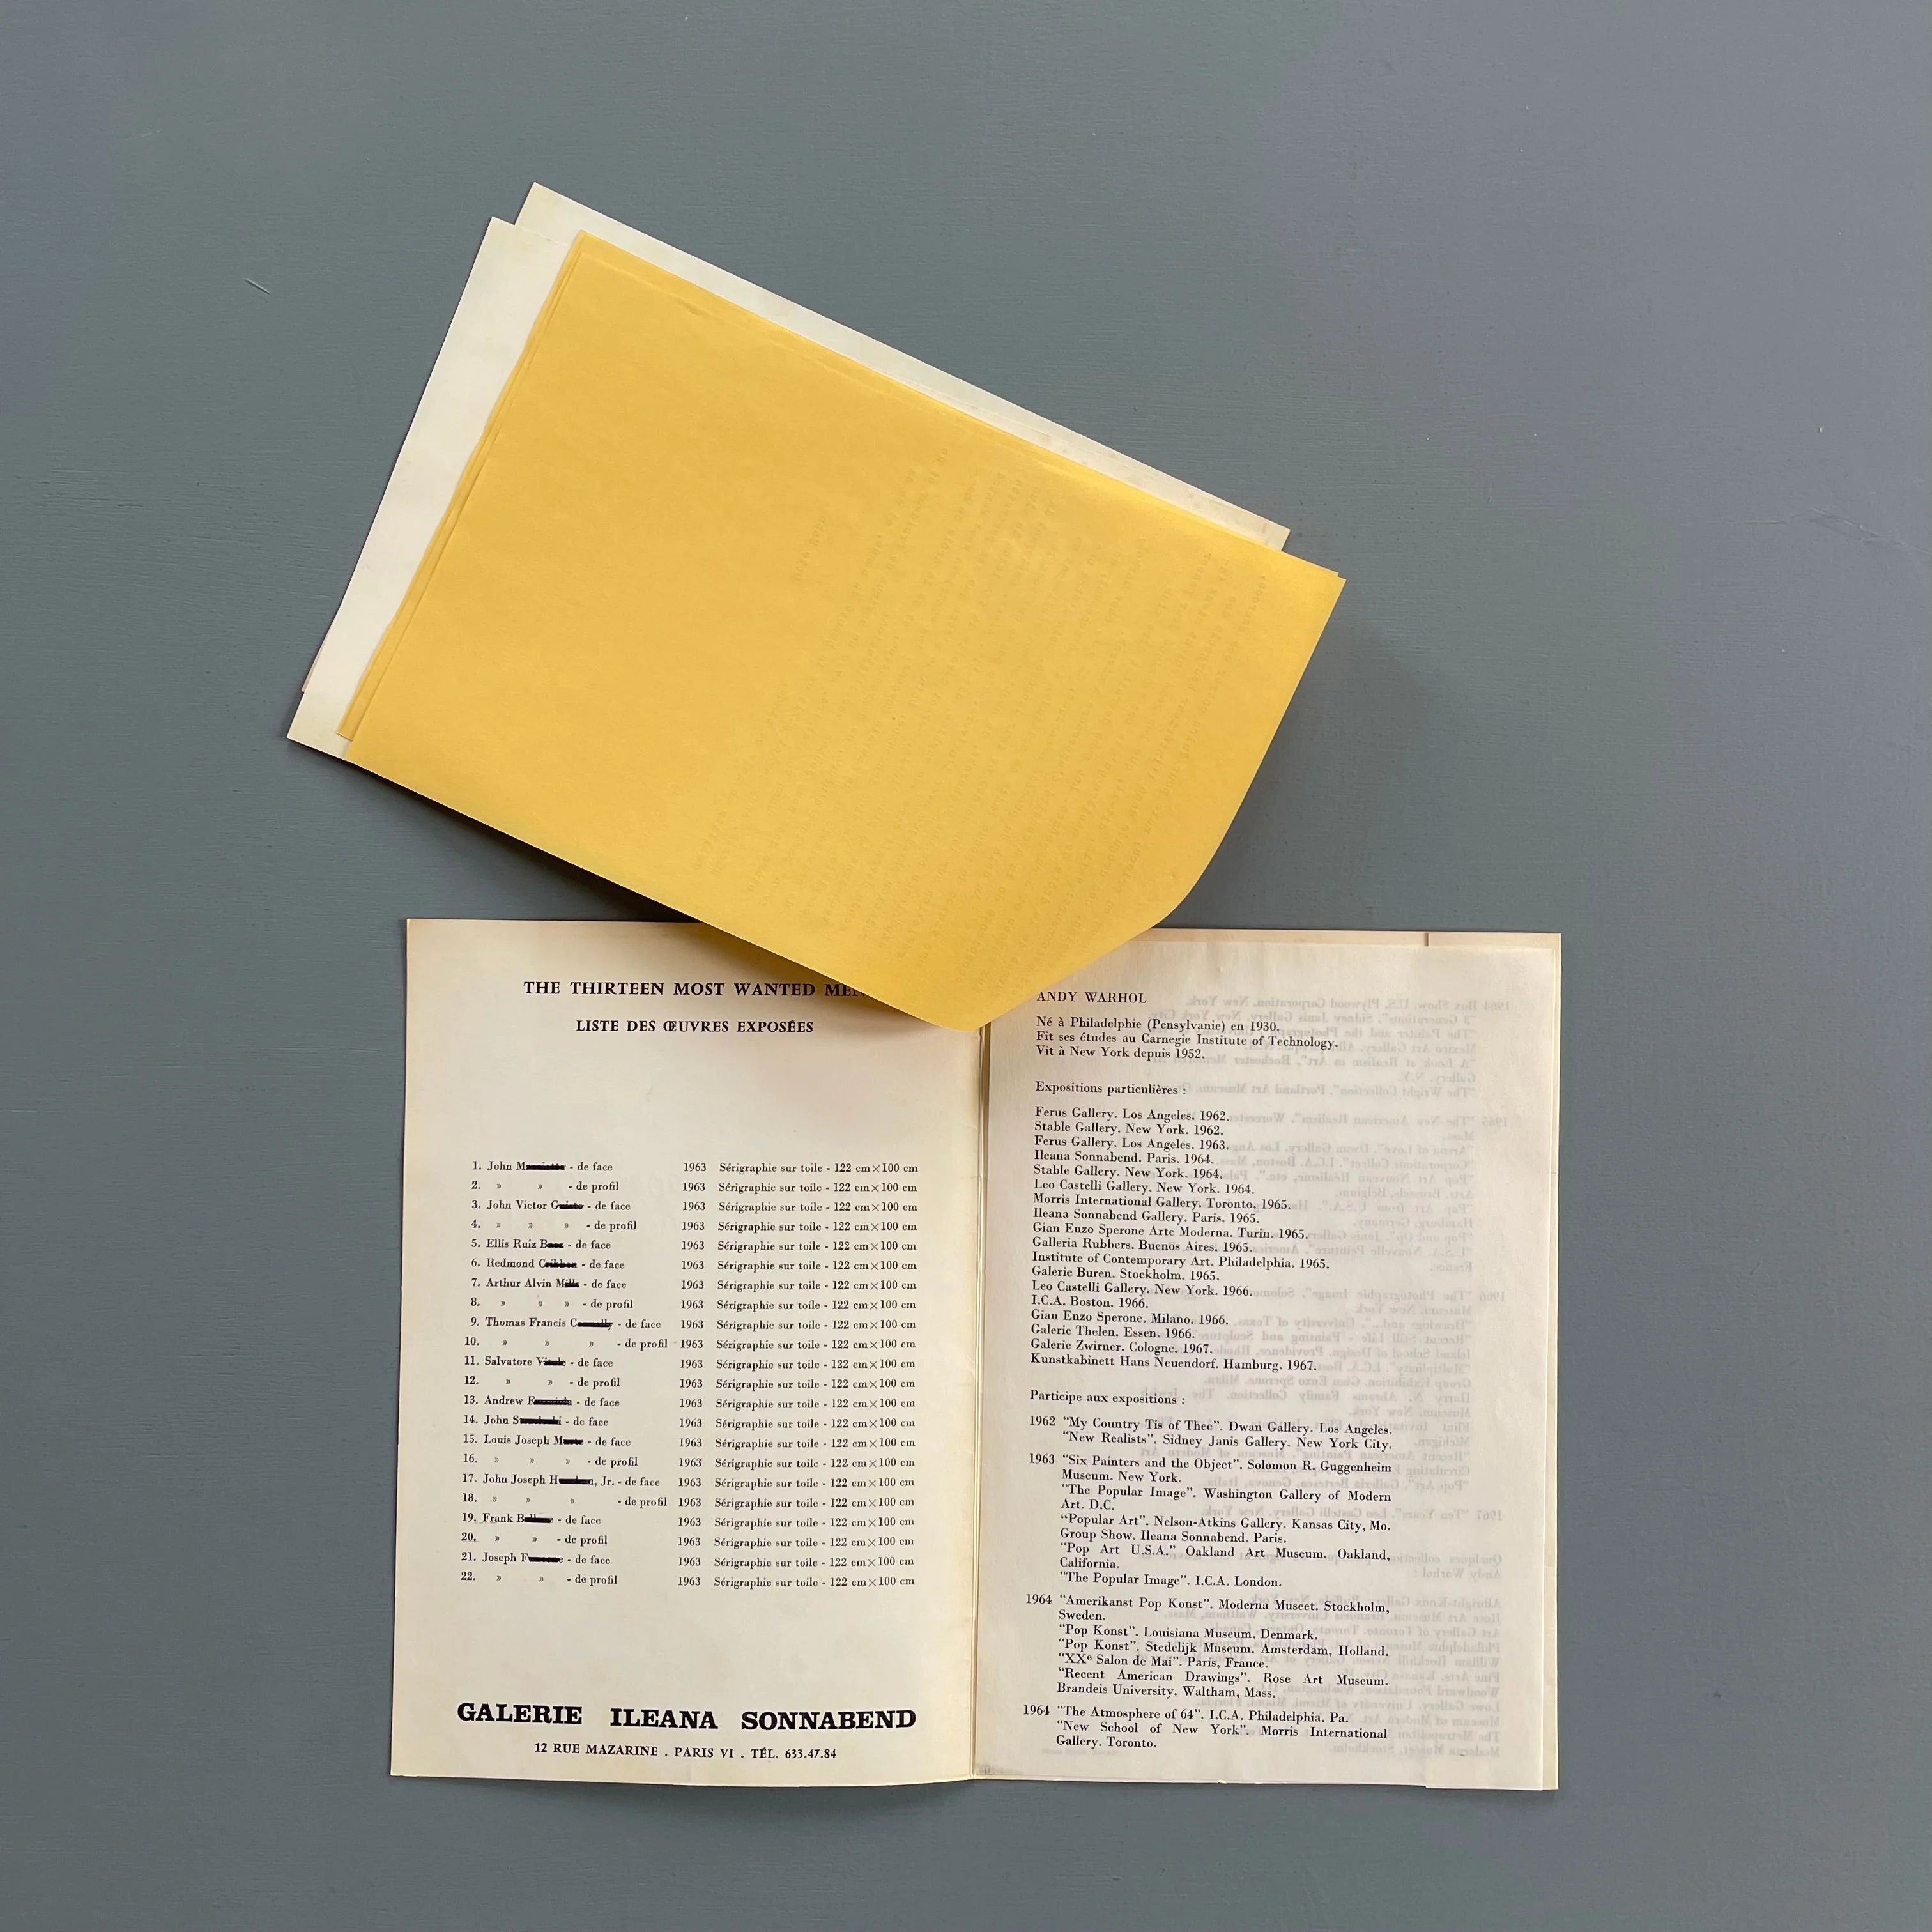 THE THIRTEEN MOST WANTED MEN
LISTE DES ŒUVRES EXPOSÉES
1. John M - de face 1963 Sérigraphie sur toile - 122 cm×100 cm
2. » » - de profil 1963 Sérigraphie sur toile - 122 cm×100 cm
3. John Victor G - de face 1963 Sérigraphie sur toile - 122 cm×100 cm
4. » » » - de profil 1963 Sérigraphie sur toile - 122 cm×100 cm
5. Ellis Ruiz B - de face 1963 Sérigraphie sur toile - 122 cm×100 cm
6. Redmond C - de face 1963 Sérigraphie sur toile - 122 cm×100 cm
7. Arthur Alvin M - de face 1963 Sérigraphie sur toile - 122 cm×100 cm
8. » » » - de profil 1963 Sérigraphie sur toile - 122 cm×100 cm
9. Thomas Francis C - de face 1963 Sérigraphie sur toile - 122 cm×100 cm
10. » » » - de profil 1963 Sérigraphie sur toile - 122 cm×100 cm
11. Salvatore V - de face 1963 Sérigraphie sur toile - 122 cm×100 cm
12. » » - de profil 1963 Sérigraphie sur toile - 122 cm×100 cm
13. Andrew F - de face 1963 Sérigraphie sur toile - 122 cm×100 cm
14. John S - de face 1963 Sérigraphie sur toile - 122 cm×100 cm
15. Louis Joseph M - de face 1963 Sérigraphie sur toile - 122 cm×100 cm
16. » » » - de profil 1963 Sérigraphie sur toile - 122 cm×100 cm
17. John Joseph H, Jr. - de face 1963 Sérigraphie sur toile - 122 cm×100 cm
18. » » » - de profil 1963 Sérigraphie sur toile - 122 cm×100 cm
19. Frank B - de face 1963 Sérigraphie sur toile - 122 cm×100 cm
20. » » - de profil 1963 Sérigraphie sur toile - 122 cm×100 cm
21. Joseph F - de face 1963 Sérigraphie sur toile - 122 cm×100 cm
22. » » - de profil 1963 Sérigraphie sur toile - 122 cm×100 cm
GALERIE ILEANA SONNABEND
12 RUE MAZARINE . PARIS VI . TÉL. 633.47.84
ANDY WARHOL
Né à Philadelphie (Pensylvanie) en 1930.
Fit ses études au Carnegie Institute of Technology.
Vit à New York depuis 1952.
Expositions particulières :
Ferus Gallery. Los Angeles. 1962.
Stable Gallery. New York. 1962.
Ferus Gallery. Los Angeles. 1963.
Ileana Sonnabend. Paris. 1964.
Stable Gallery. New York. 1964.
Leo Castelli Gallery. New York. 1964.
Morris International Gallery. Toronto. 1965.
Ileana Sonnabend Gallery. Paris. 1965.
Gian Enzo Sperone Arte Moderna. Turin. 1965.
Galleria Rubbers. Buenos Aires. 1965.
Institute of Contemporary Art. Philadelphia. 1965.
Galerie Buren. Stockholm. 1965.
Leo Castelli Gallery. New York. 1966.
I.C.A. Boston. 1966.
Gian Enzo Sperone. Milano. 1966.
Galerie Thelen. Essen. 1966.
Galerie Zwirner. Cologne. 1967.
Kunstkabinett Hans Neuendorf. Hamburg. 1967.
Participe aux expositions :
1962 "My Country Tis of Thee". Dwan Gallery. Los Angeles.
"New Realists". Sidney Janis Gallery. New York City.
1963 "Six Painters and the Object". Solomon R. Guggenheim
Museum. New York.
"The Popular Image". Washington Gallery of Modern
Art. D.C.
"Popular Art". Nelson-Atkins Gallery. Kansas City, Mo.
Group Show. Ileana Sonnabend. Paris.
"Pop Art U.S.A." Oakland Art Museum. Oakland,
California.
"The Popular Image". I.C.A. London.
1964 "Amerikanst Pop Konst". Moderna Museet. Stockholm,
Sweden.
"Pop Konst". Louisiana Museum. Denmark.
"Pop Konst". Stedelijk Museum. Amsterdam, Holland.
"XXe Salon de Mai". Paris, France.
"Recent American Drawings". Rose Art Museum.
Brandeis University. Waltham, Mass.
1964 "The Atmosphere of 64". I.C.A. Philadelphia. Pa.
"New School of New York". Morris International
Gallery. Toronto.